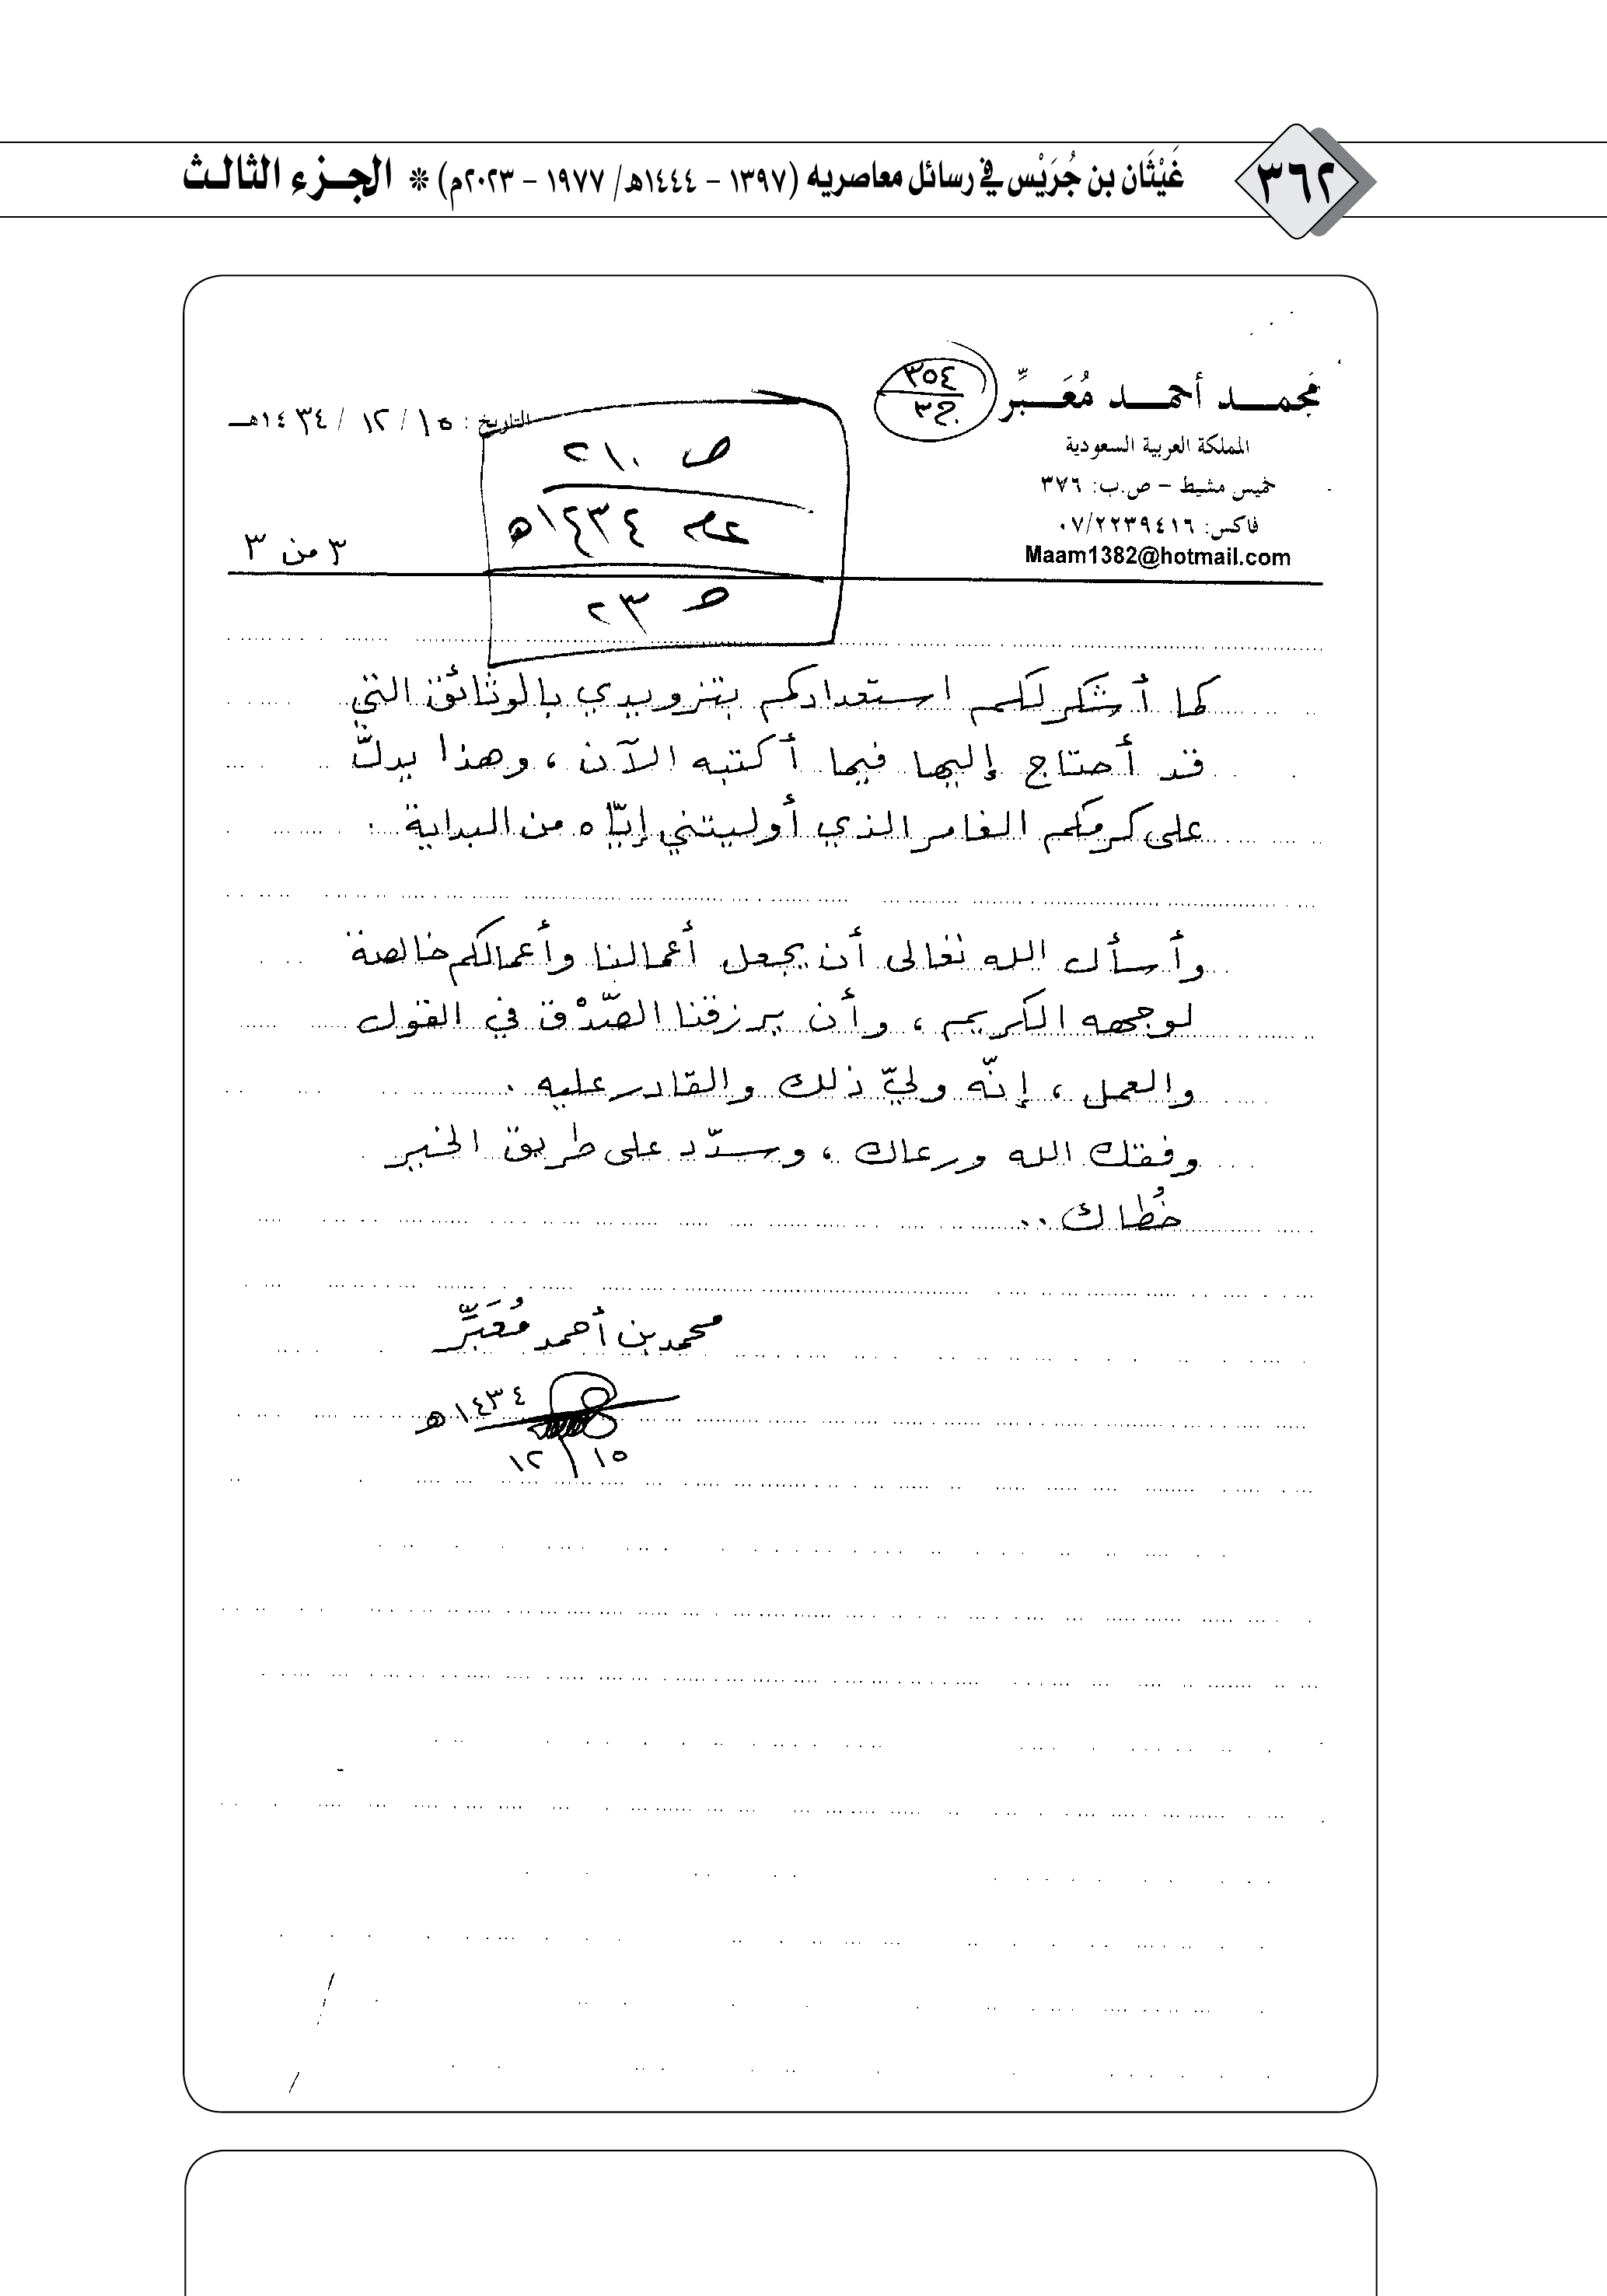 ٣٦٢ غَيْثَان بن جُرَيْس في رسائل معاصريه (١٣٩٧ – ١٤٤٤هـ/ ١٩٧٧ – ٢٠٢٣م) * الجزء الثالث
محمد أحمد مُعَبِّر
٣٥٤
ج٣
المملكة العربية السعودية
خميس مشيط – ص.ب: ٣٧٦
فاكس: ٠٧/٢٢٣٩٤١٦
Maam1382@hotmail.com
التاريخ : ١٥ / ١٢ / ١٤٣٤هـ
ص ٢١٠
عام ١٤٣٤هـ
ص ٢٣
٣ من ٣
كما أشكر لكم استعدادكم بتزويدي بالوثائق التي
قد أحتاج إليها فيما أكتبه الآن ، وهذا يدلّ
على كرمكم الغامر الذي أوليتني إيّاه من البداية .
وأسأل الله تعالى أن يجعل أعمالنا وأعمالكم خالصة
لوجهه الكريم ، وأن يرزقنا الصّدْق في القول
والعمل ، إنّه وليّ ذلك والقادر عليه .
وفقك الله ورعاك ، وسدّد على طريق الخير
خُطاك ..
محمد بن أحمد مُعَبِّر
١٤٣٤هـ
١٥ / ١٢